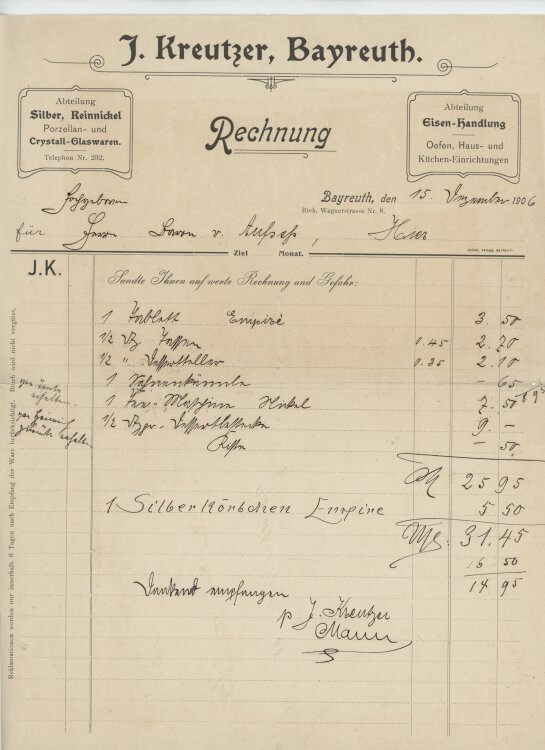 J. Kreutzer, Bayreuth.
Abteilung
Silber, Reinnickel
Porzellan- und
Crystall-Glaswaren.
Telephon Nr. 282.
Rechnung
Abteilung
Eisen-Handlung
Oefen, Haus- und
Küchen-Einrichtungen
Bayreuth, den 15. Dezember 1906
Rich. Wagnerstrasse Nr. 8.
Hochgeboren
für Herrn Baron v. Aufsess, Hier
Ziel Monat.
J.K.
Sandte Ihnen auf werte Rechnung und Gefahr:
1 Tablett Empire 3. 50
1/2 Dtz Tassen 0.45 2. 70
1/2 " Dessertteller 0.35 2. 10
1 Sahnenkännle - 65
1 Tee-Maschine Nickel 7. 50
1/2 Dtzr. Dessertbestecke 9. -
Kiste - 50
M 25 95
1 Silberkörbchen Empire 5 50
M. 31. 45
16 50
14 95
Dankend empfangen
p J. Kreutzer
Mann
Reklamationen werden nur innerhalb 8 Tagen nach Empfang der Ware berücksichtigt. Bruch wird nicht vergütet.